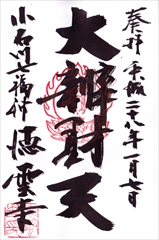 奉拝 平成二十八年一月七日
大辨財天
小石川七福神 徳雲寺